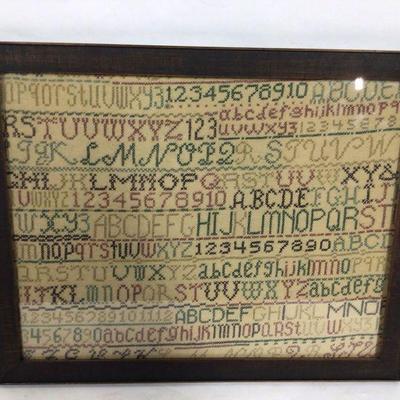 pqrstuvwxyz 12345678910 ABCDE
abcdefghijklmnopq
RSTUVWXYZ 123
uvwxyz 123456789
IJK LMNOPQ RSTUVW
GHIJKLMNOPQRSTUVWXYZ
UVWXYZ 12345678910 ABCDE
WXYZ ABCDEFG HIJKLMNOPQRST
mnopqrstuvwxyz 1234567890 ABC
RSTUVWXYZ abcdefghijklmno
IJKLMNOPQRSTUVWXYZ abcdef
123456789101112 ABCDEFGHIJKLMNO
4567890 abcdefghijklmnopqrstuvwx